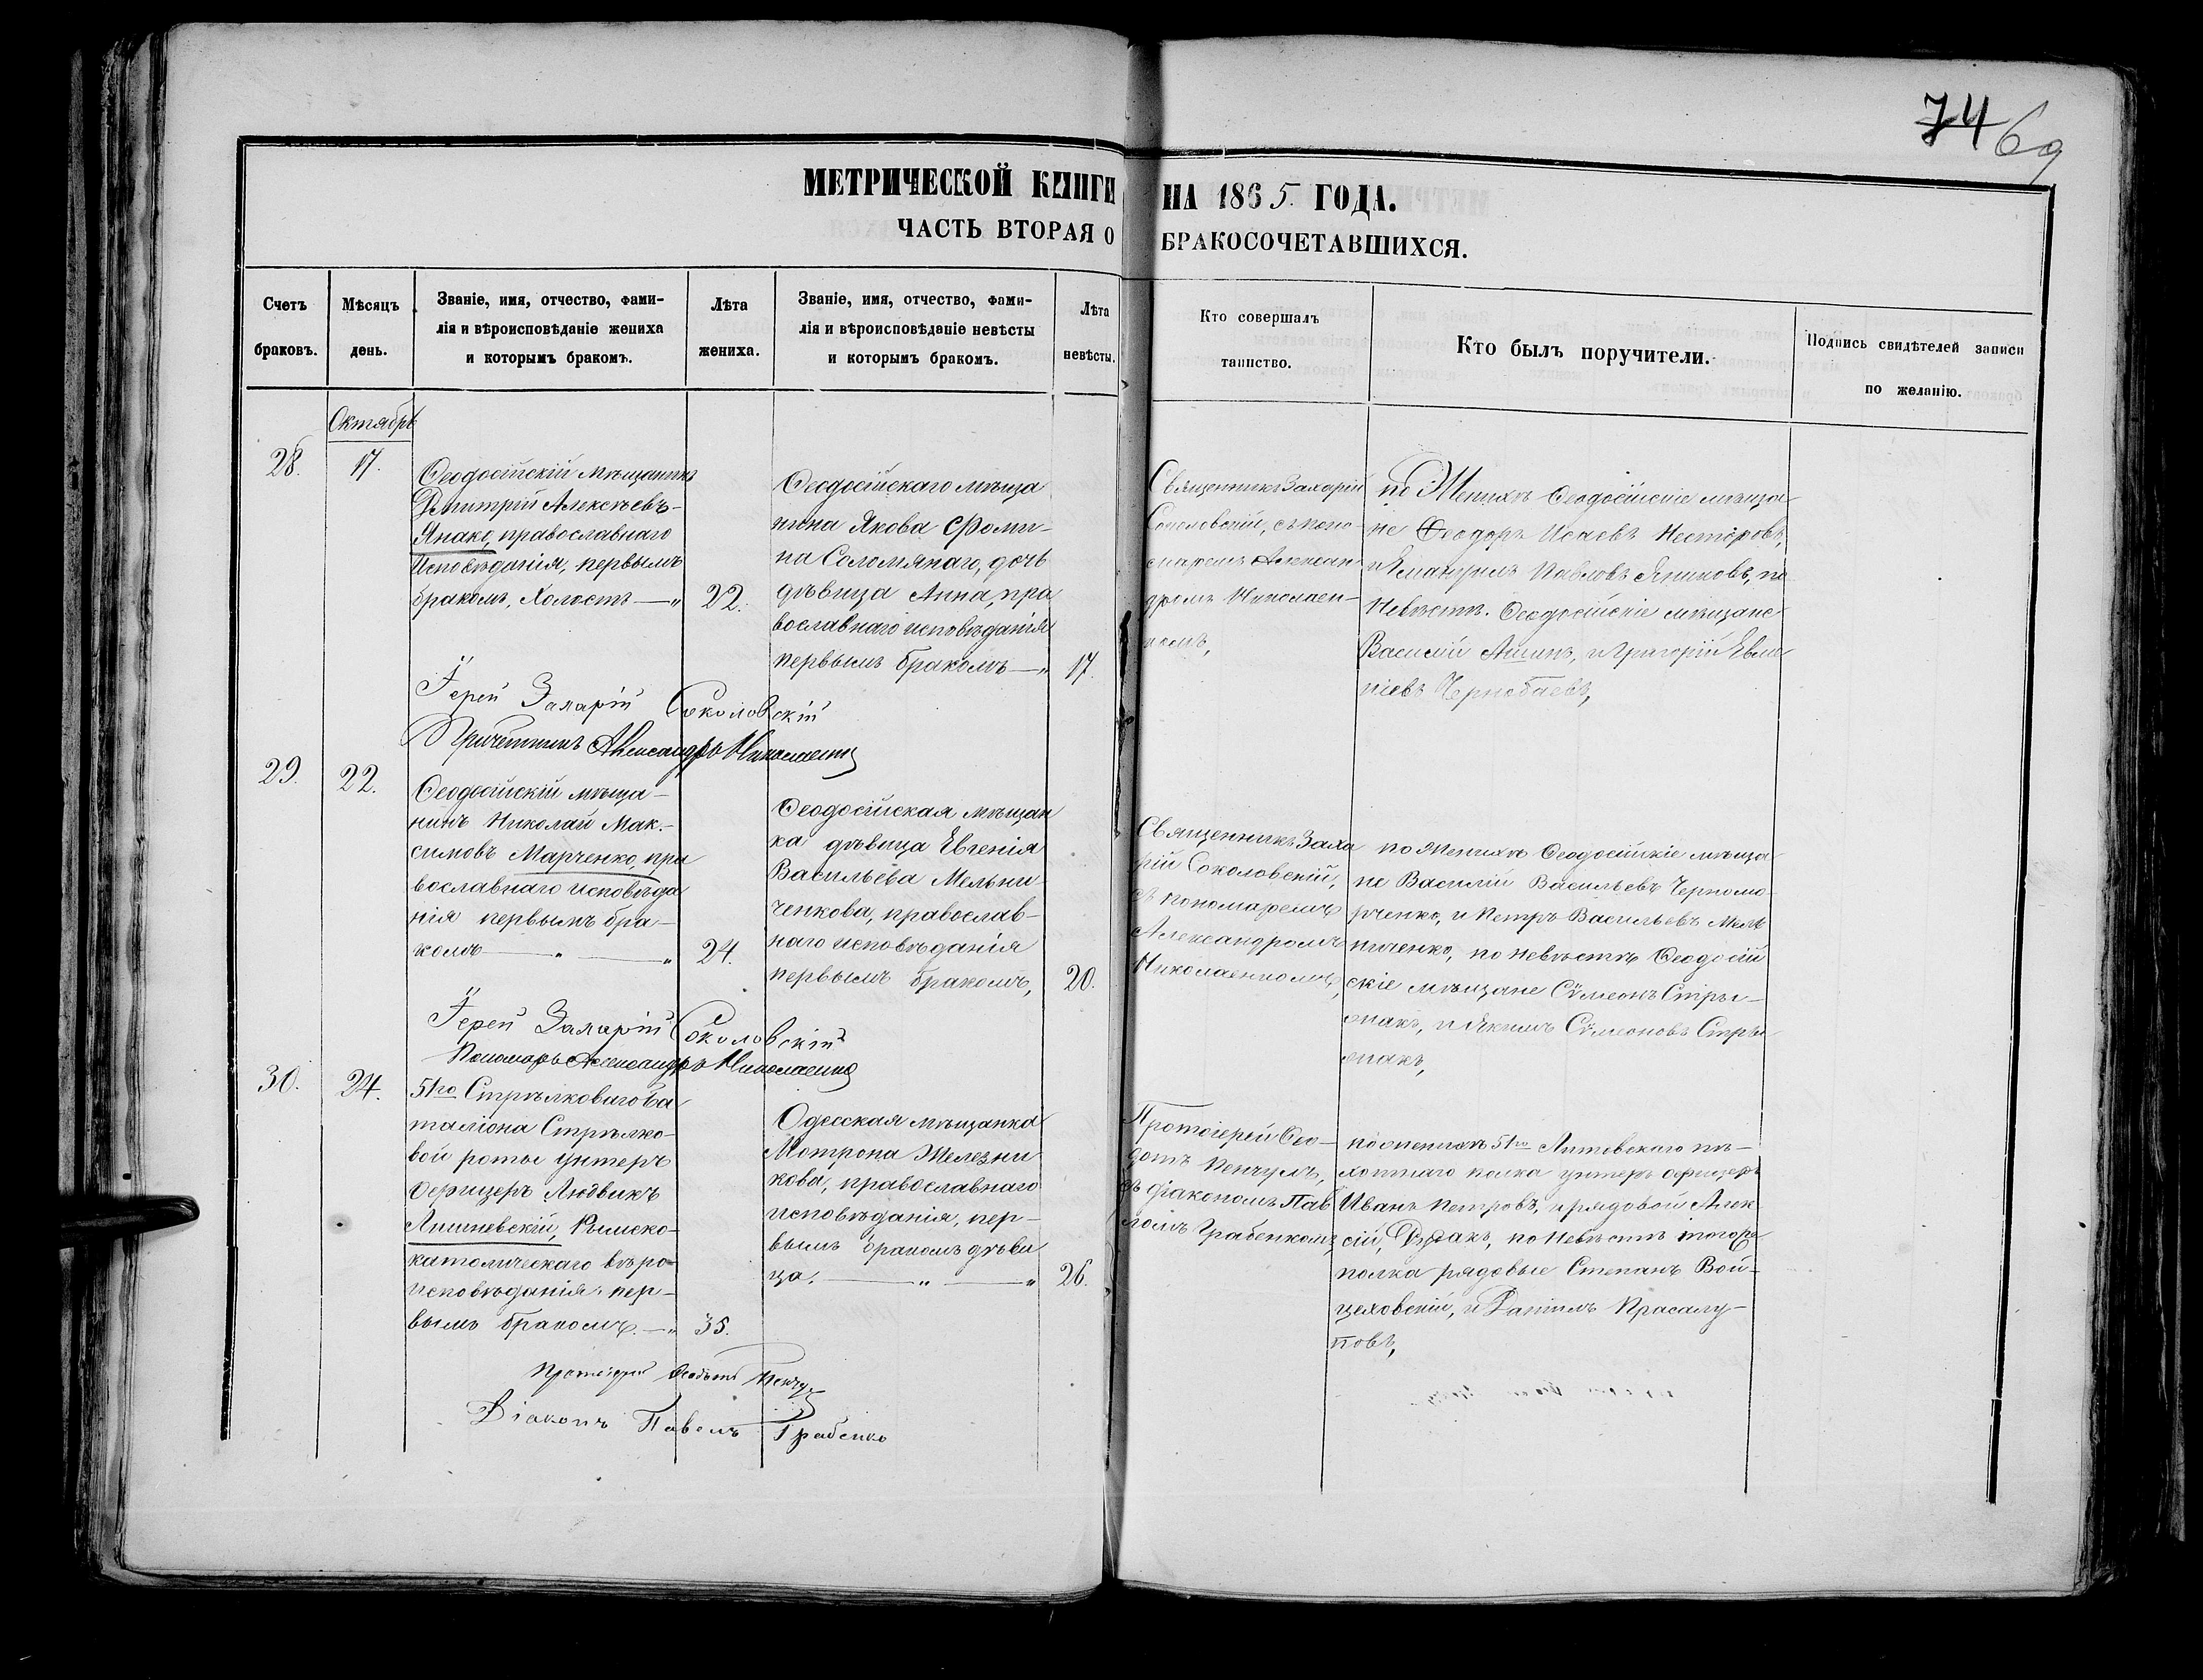 74 69
МЕТРИЧЕСКОЙ КНИГИ НА 1865. ГОДА.
ЧАСТЬ ВТОРАЯ О БРАКОСОЧЕТАВШИХСЯ.
Счетъ
браковъ.
Мѣсяцъ
день.
Званіе, имя, отчество, фами-
лія и вѣроисповѣданіе жениха
и которымъ бракомъ.
Лѣта
жениха.
Званіе, имя, отчество, фами-
лія и вѣроисповѣданіе невѣсты
и которымъ бракомъ.
Лѣта
невѣсты.
Кто совершалъ
таинство.
Кто былъ поручители.
Подпись свидѣтелей записи
по желанію.
Октябрь
28.
17.
Ѳеодосійскій мѣщанинъ
Димитрій Алексѣевъ-
Янако, православнаго
исповѣданія, первымъ
бракомъ, холостъ —„
22.
Ѳеодосійскаго мѣща
нина Якова Ѳоми-
на Соломянаго, дочь
дѣвица Анна, пра
вославнаго исповѣданія
первымъ бракомъ —„
17.
Священникъ Захарій
Соколовскій, съ поно-
маремъ Алексан
дромъ Николаен-
комъ,
по Женихѣ Ѳеодосійскіе мѣща-
не Ѳеодоръ Исаевъ Нестеровъ,
и Эмануилъ Павловъ, по
Невѣстѣ. Ѳеодосійскіе мѣщане
Василій и Григорій Евме
ніевъ Чернобаевъ,
Іерей Захарій Соколовскій
Причетникъ Александръ Николаенко
29.
22.
Ѳеодосійскій мѣща-
нинъ Николай Мак-
симовъ Марченко, пра
вославнаго исповѣда
нія первымъ бра-
комъ — „ — „
24.
Ѳеодосійская мѣщан
ка дѣвица Евгенія
Васильева Мельни-
ченкова, православ-
наго исповѣданія
первымъ бракомъ,
20.
Священникъ Заха
рій Соколовскій,
съ пономаремъ
Александромъ
Николаенкомъ,
по Женихѣ Ѳеодосійскіе мѣща-
не Василій Васильевъ Черномо-
рченко, и Петръ Васильевъ Мель
ниченко, по невѣстѣ Ѳеодосій
скіе мѣщане Сѵмеонъ Стры-
жакъ, и Якимъ Сѵмеоновъ Стры
жакъ,
Іерей Захарій Соколовскій
Пономарь Александръ Николаенко
30.
24.
51го Стрѣлковаго ба
таліона Стрѣлко-
вой роты унтеръ
офицеръ Людвикъ
Лишневскій, Римско-
католическаго вѣро-
исповѣданія, пер-
вымъ бракомъ. —„
35.
Одесская мѣщанка
Мотрона Железни
кова, православнаго
исповѣданія, пер-
вымъ бракомъ дѣви
ца. — „ — „
26.
Протоіерей Ѳео-
дотъ Пенчулъ,
съ діакономъ Пав
ломъ Грабенкомъ
по женихѣ 51го Литовскаго пѣ-
хотнаго полка унтеръ офицеръ
Иванъ Петровъ, и рядовой Алек
сій, по Невѣстѣ того же
полка рядовые Степанъ Вой-
цеховскій, и Даніилъ Красалу-
повъ,
Протоіерей Ѳеодотъ
Діаконъ Павелъ Грабенко